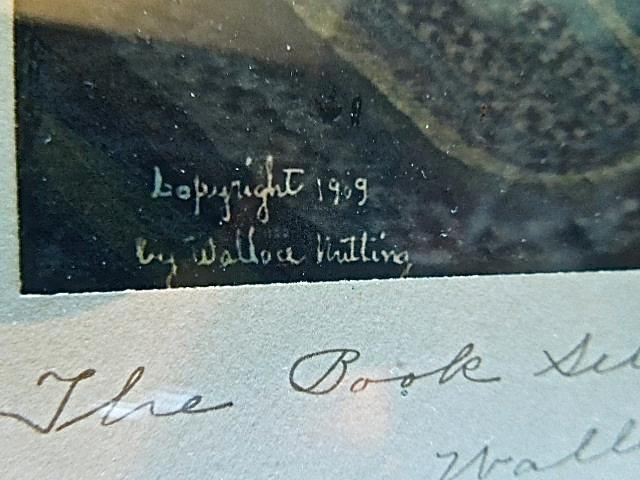 Copyright 1909
by Wallace Nutting
The Book Set
Wall